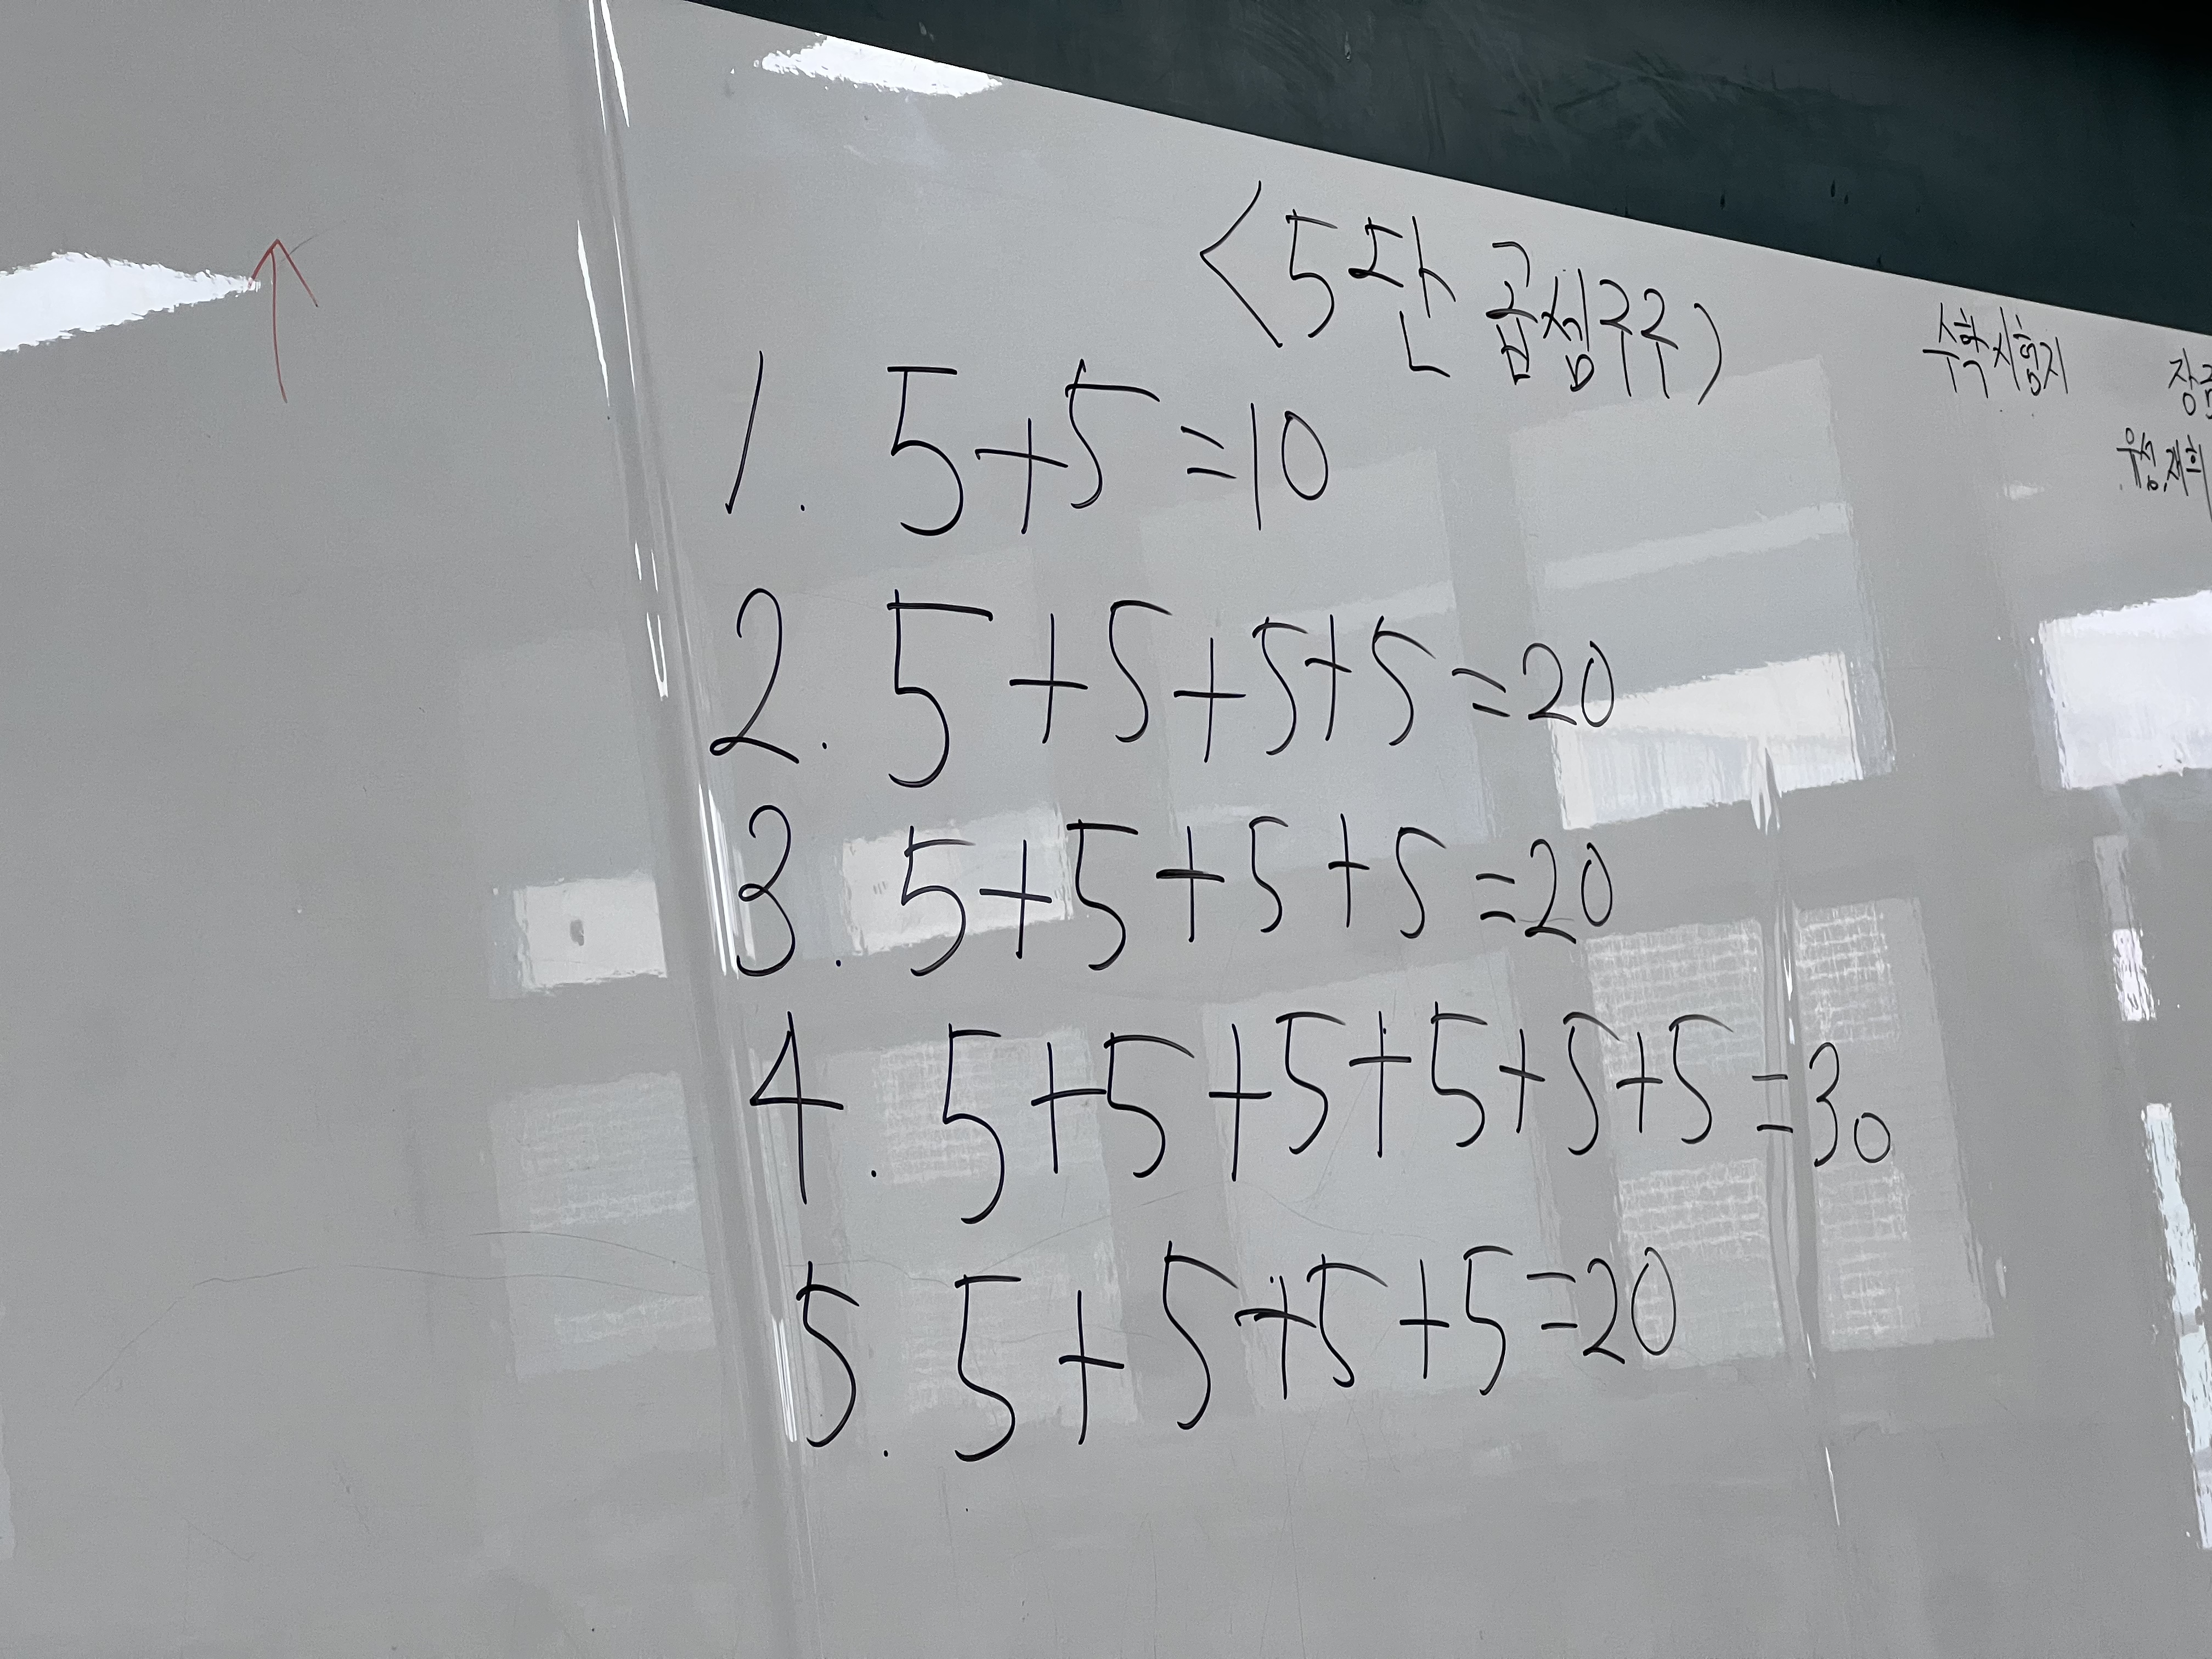 <5단 곱셈구구)
1. 5+5=10
2. 5+5+5+5=20
3. 5+5+5+5=20
4. 5+5+5+5+5+5=30
5. 5+5+5+5=20
수학시험지